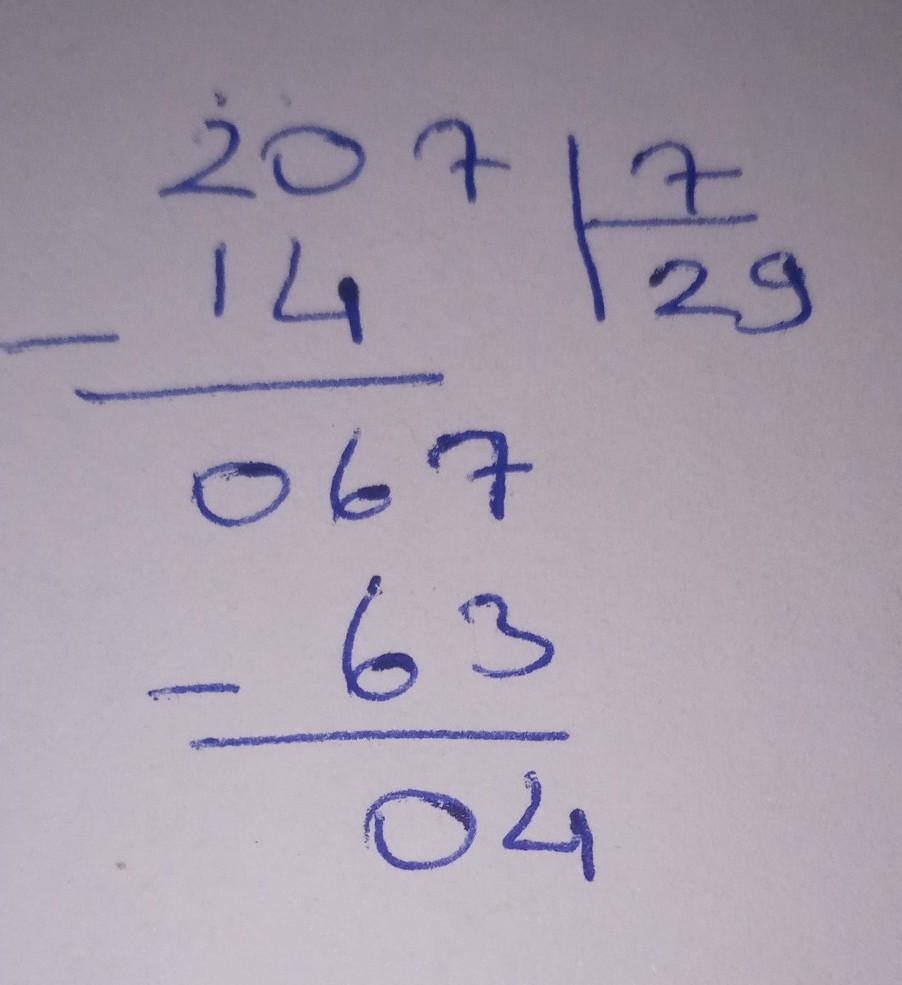 207 7
14 29
-
067
63
-
04